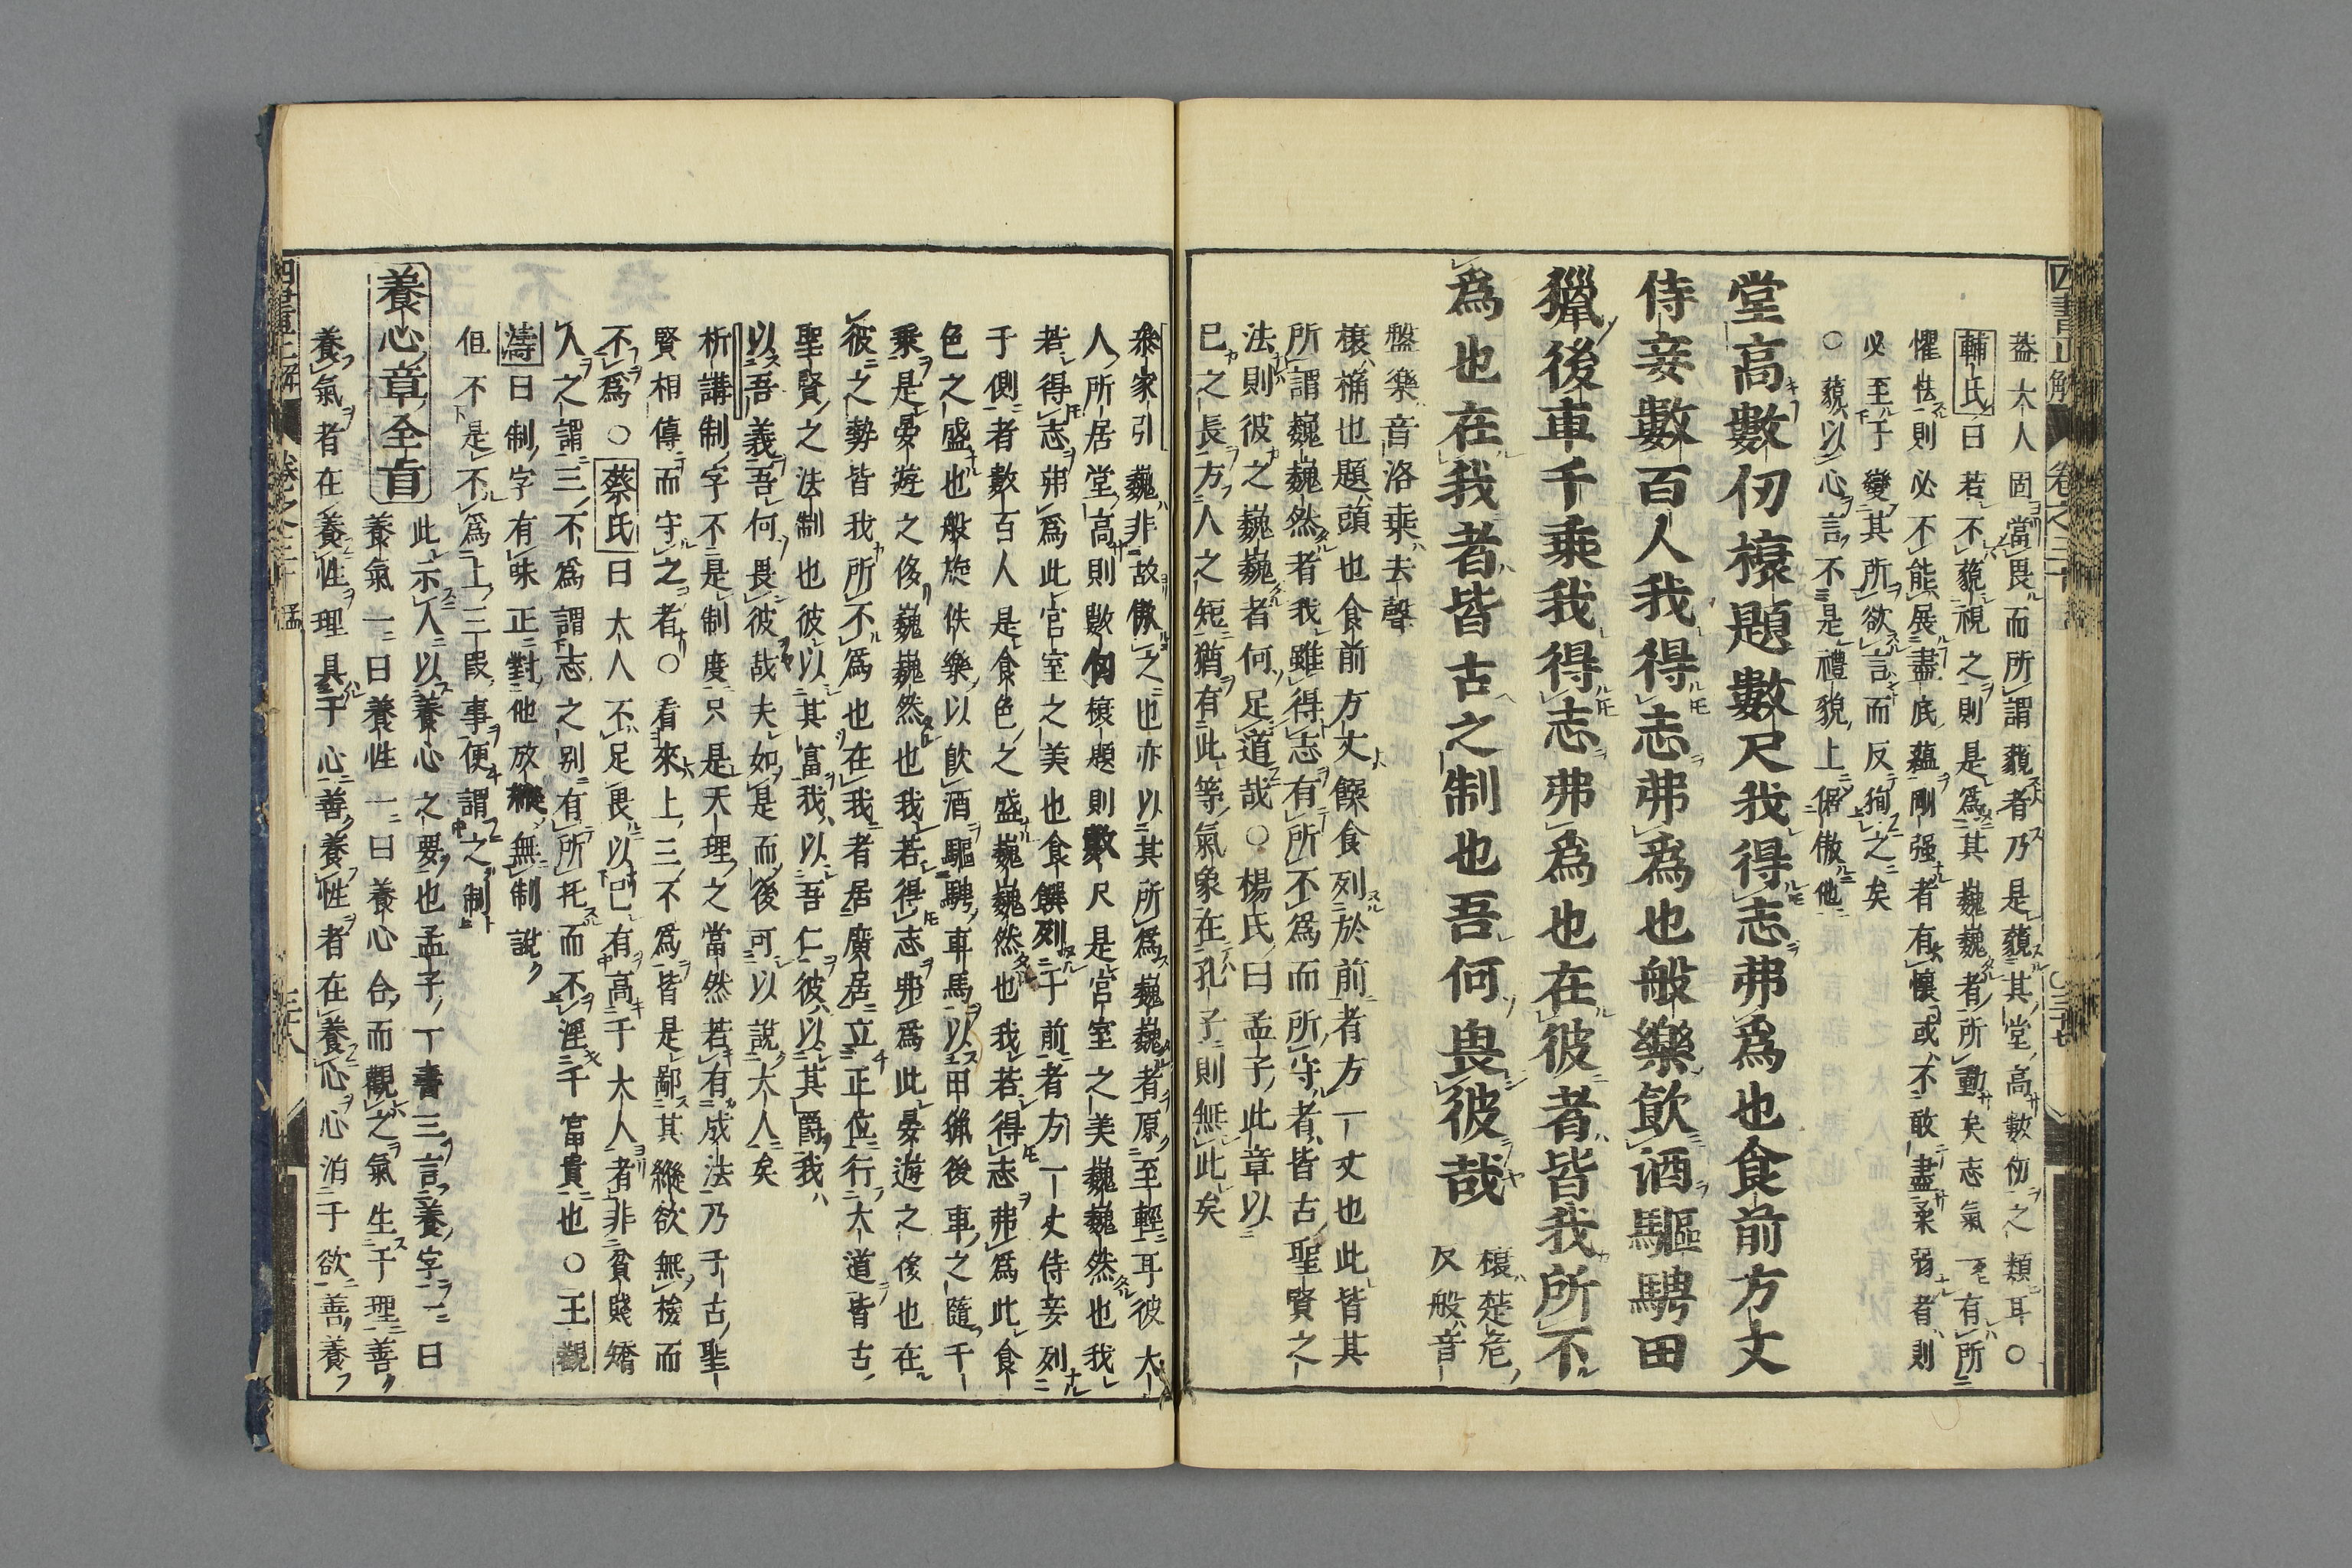 葢大人固當畏而所謂藐者乃是藐其堂高數仞之類耳○
輔氏曰若不藐視之則是爲其巍巍者所動矣志氣一有所
懼怯則必不能展盡底蘊剛强者有懐或不敢盡柔弱者則
必至于變其所欲言而反狥之矣
○藐以心言不是禮貌上倨傲他
堂高數仞榱題數尺我得志弗爲也食前方丈
侍妾數百人我得志弗爲也般樂飮酒驅騁田
獵後車千乘我得志弗爲也在彼者皆我所不
爲也在我者皆古之制也吾何畏彼哉 榱楚危
反般音
盤樂音洛乘去聲
榱桷也題頭也食前方丈饌食列於前者方一丈也此皆其
所謂巍巍然者我雖得志有所不爲而所守者皆古聖賢之
法則彼之巍巍者何足道哉○楊氏曰孟子此章以
已之長方人之短猶有此等氣象在孔子則無此矣
四書正解 卷之三十 ○三十七
叅家引巍非故傲之也亦以其所爲巍巍者原至輕耳彼大
人所居堂高則數仞榱題則數尺是宮室之美巍巍然也我
若得志弗爲此宮室之美也食饌列于前者方一丈侍妾列
于側者數百人是食色之盛巍巍然也我若得志弗爲此食
色之盛也般旋佚樂以飮酒驅騁車馬以田獵後車之隨千
乘是晏遊之侈巍巍然也我若得志弗爲此晏遊之侈也在
彼之勢皆我所不爲也在我者居廣居立正位行大道皆古
聖賢之法制也彼以其富我以吾仁彼以其爵我
以吾義吾何畏彼哉夫如是而後可以說大人矣
析講制字不是制度只是天理之當然若有成法乃于古聖
賢相傳而守之者○看來上三不爲皆是鄙其縱欲無檢而
不爲○蔡氏曰大人不足畏以已有高于大人者非貧賤矯
人之謂三不爲謂志之别有所托而不淫于富貴也○王觀
濤曰制字有味正對他放縱無制說
但不是不爲上三叚事便謂之制
養心章全㫖 此示人以養心之要也孟子一書三言養字一曰
養氣一曰養性一曰養心合而觀之氣生于理善
養氣者在養性理具于心善養性者在養心心泊于欲善養
四書正解 卷之三十 孟 三十八